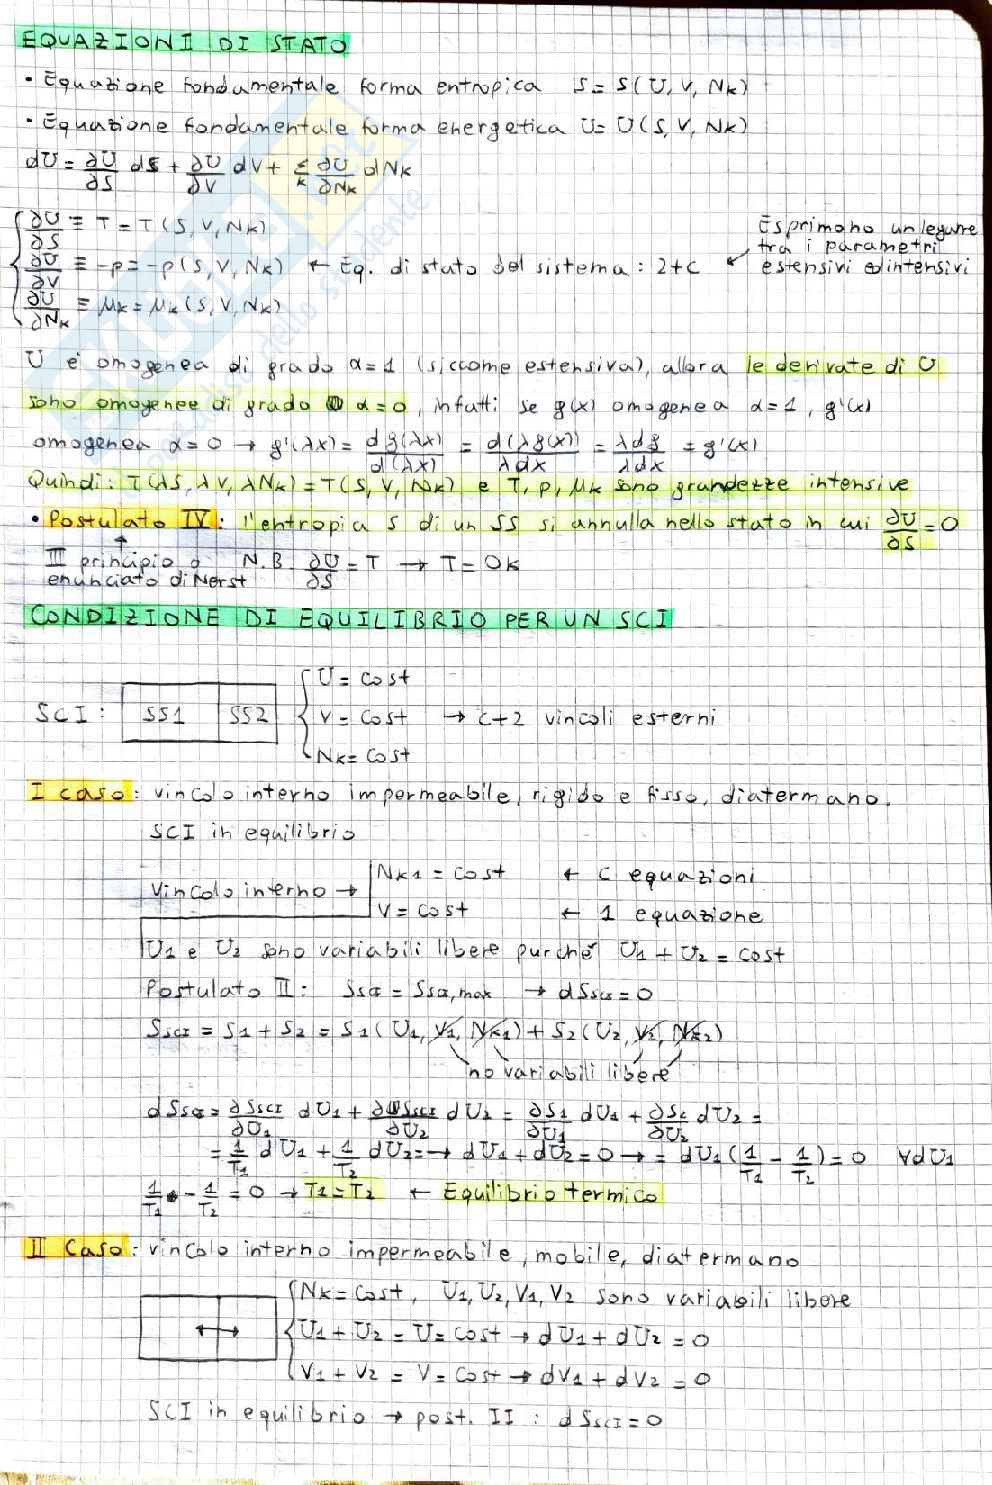 EQUAZIONI DI STATO
• Equazione fondamentale forma entropica S = S(U, V, Nk)
• Equazione fondamentale forma energetica U = U(S, V, Nk)
dU = ∂U/∂S dS + ∂U/∂V dV + Σk ∂U/∂Nk dNk
∂U/∂S ≡ T = T(S, V, Nk)
∂U/∂V ≡ -p = -p(S, V, Nk) ← Eq. di stato del sistema: 2+C
∂U/∂Nk ≡ μk = μk(S, V, Nk)
Esprimono un legame
tra i parametri
estensivi ed intensivi
U è omogenea di grado α=1 (siccome estensiva), allora le derivate di U
sono omogenee di grado α=0, infatti se g(x) omogenea α=1, g'(x)
omogenea α=0 → g'(λx) = dg(λx)/d(λx) = d(λg(x))/λdx = λdg/λdx = g'(x)
Quindi: T(λS, λV, λNk) = T(S, V, Nk) e T, p, μk sono grandezze intensive
• Postulato IV: l'entropia S di un SS si annulla nello stato in cui ∂U/∂S = 0
III principio o N.B. ∂U/∂S = T → T = 0K
enunciato di Nerst
CONDIZIONE DI EQUILIBRIO PER UN SCI
U = cost
SCI: SS1 SS2 V = cost → C+2 vincoli esterni
Nk = cost
I caso: vincolo interno impermeabile, rigido e fisso, diatermano.
SCI in equilibrio
Vincolo interno → Nk1 = cost ← C equazioni
V = cost ← 1 equazione
U1 e U2 sono variabili libere purché U1 + U2 = cost
Postulato II: Ssci = Ssci,max → dSsci = 0
Ssci = S1 + S2 = S1(U1, V1, Nk1) + S2(U2, V2, Nk2)
no variabili libere
dSsci = ∂Ssci/∂U1 dU1 + ∂Ssci/∂U2 dU2 = ∂S1/∂U1 dU1 + ∂S2/∂U2 dU2 =
= 1/T1 dU1 + 1/T2 dU2 = → dU1 + dU2 = 0 → = dU1(1/T1 - 1/T2) = 0 ∀dU1
1/T1 - 1/T2 = 0 → T1 = T2 ← Equilibrio termico
II Caso: vincolo interno impermeabile, mobile, diatermano
Nk = cost, U1, U2, V1, V2 sono variabili libere
U1 + U2 = U = cost → dU1 + dU2 = 0
V1 + V2 = V = cost → dV1 + dV2 = 0
SCI in equilibrio → post. II: dSsci = 0